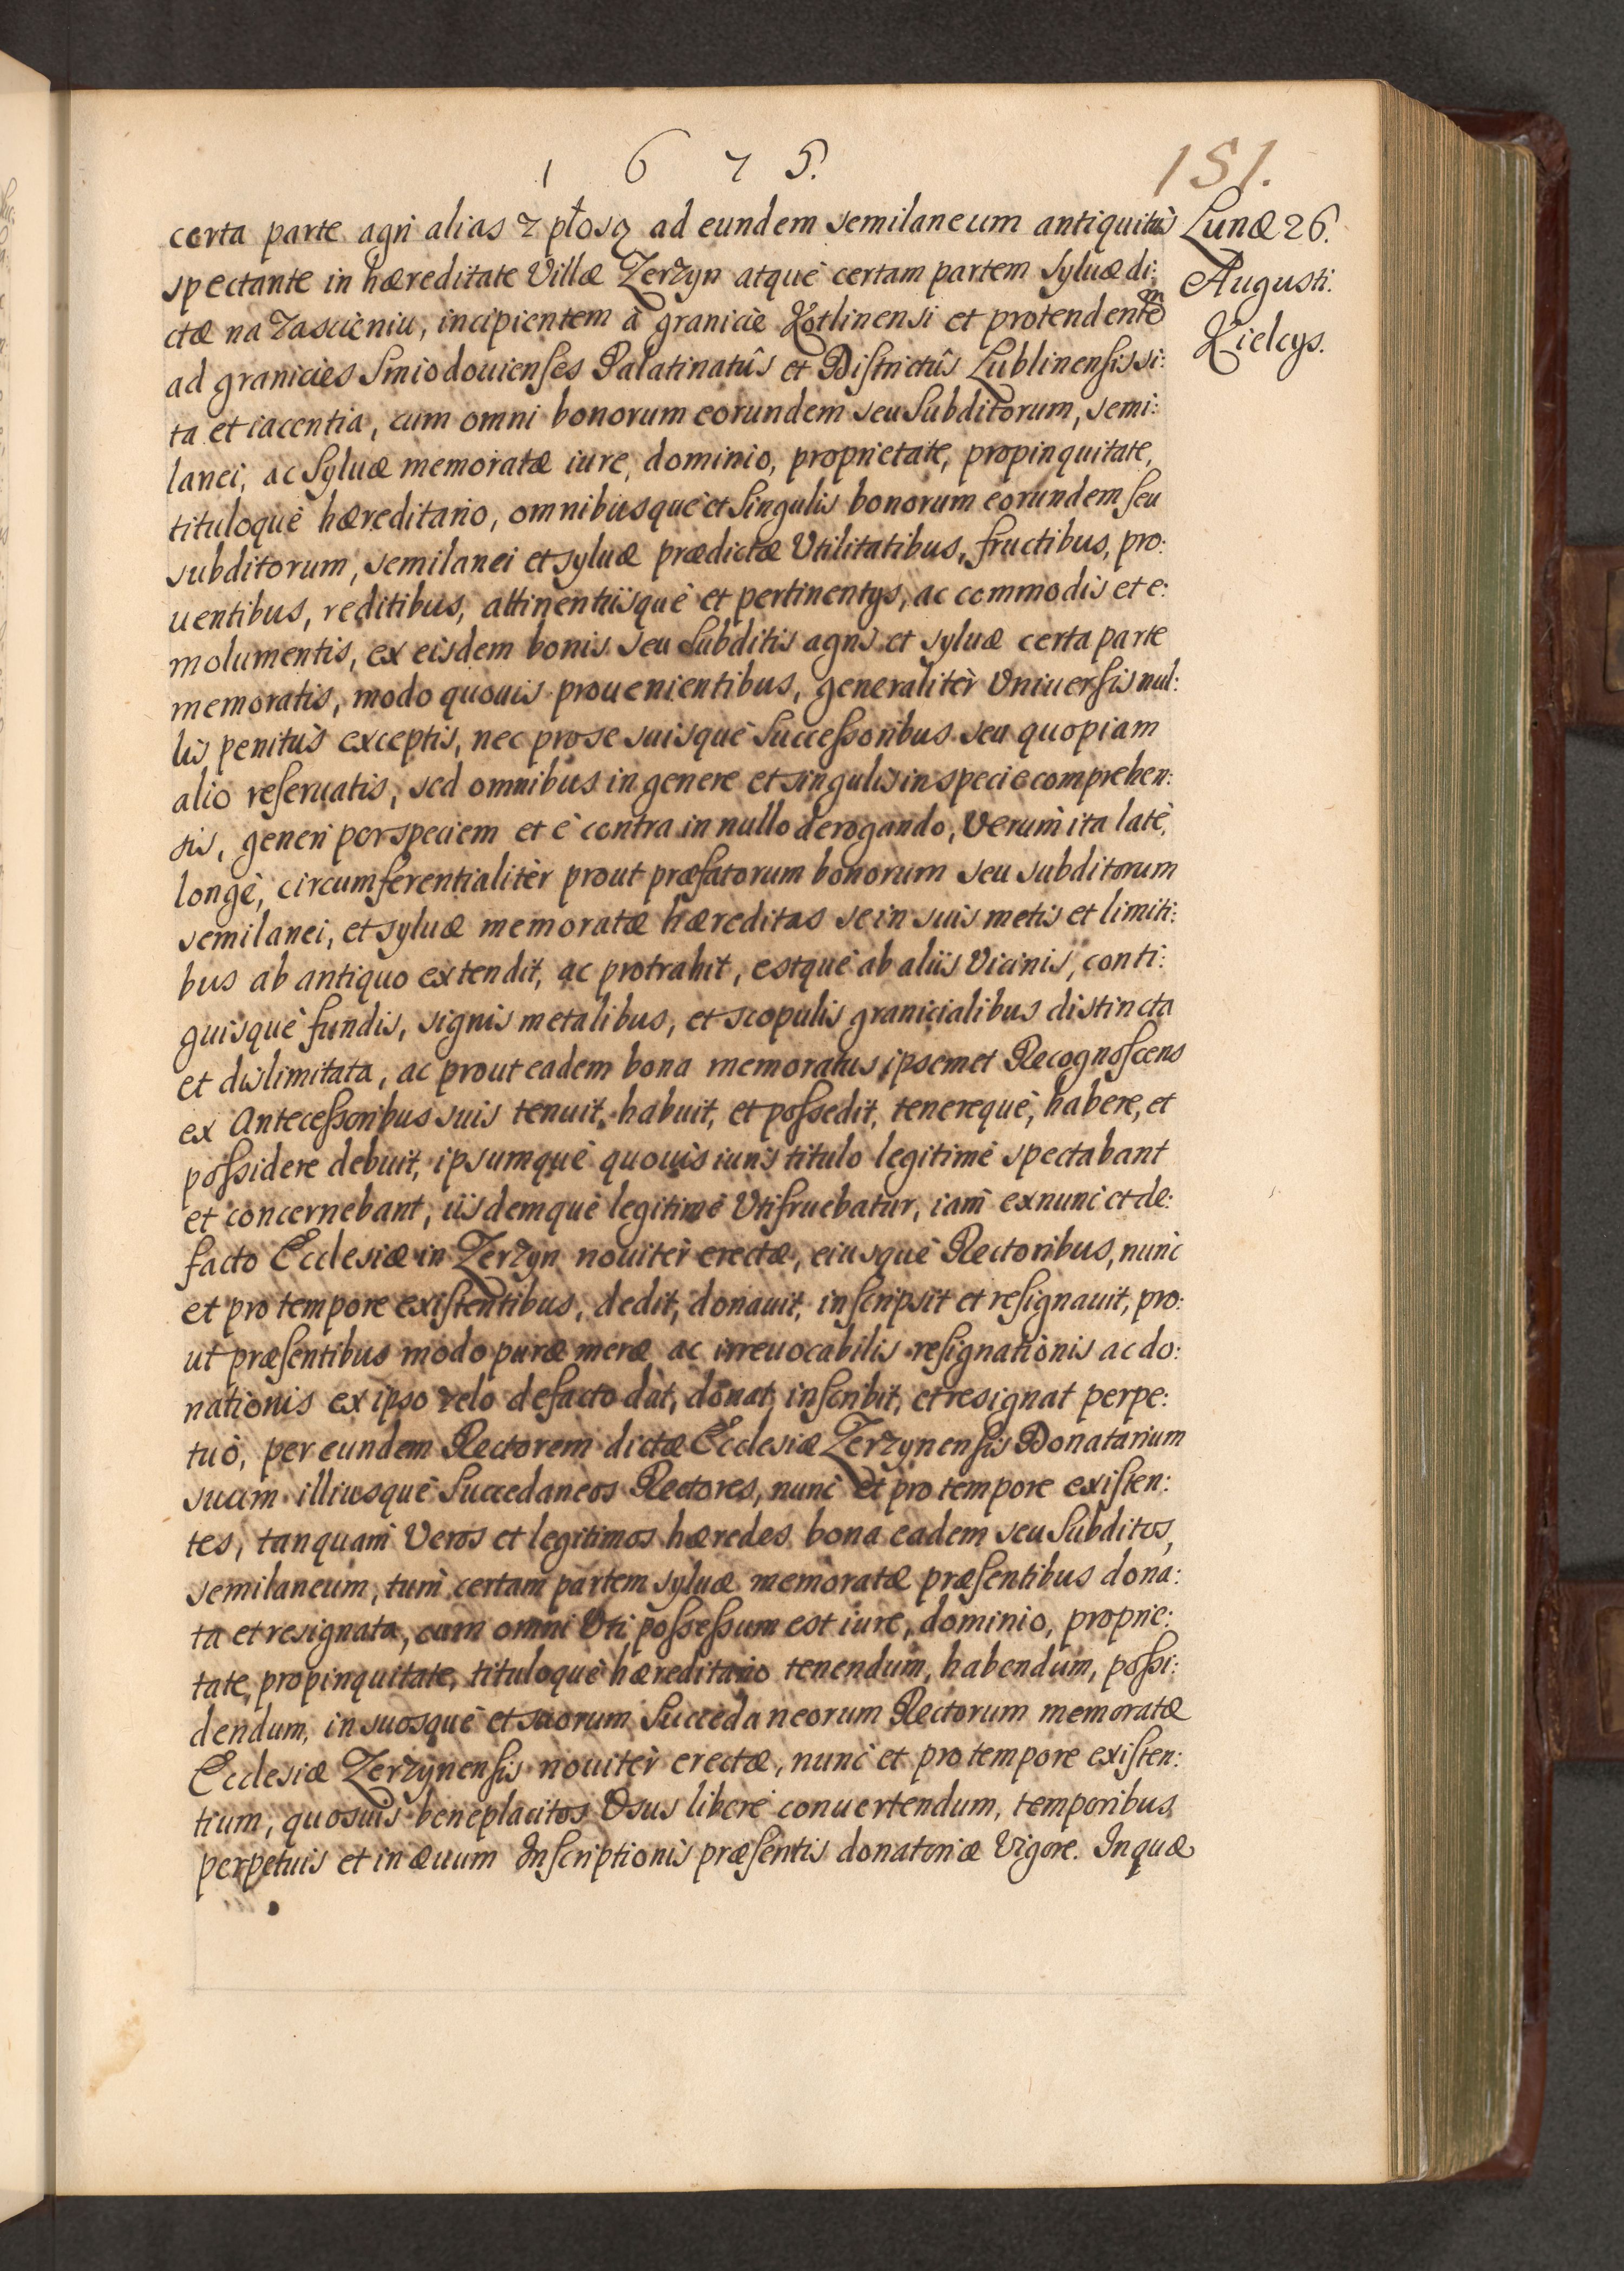 1 6 7 5.
151.
certa parte agri alias z płosą ad eundem semilaneum antiquitùs
spectante in hæreditate Villæ Zerzyn atquè certam partem Syluæ di:
ctæ na Zascieniu, incipientem à granicie Kotlinensi et protendentem
ad granicies Smiodouienses Palatinatûs et Districtûs Lublinensis si:
ta et iacentia, cum omni bonorum eorundem seu Subditorum, semi:
lanei, ac Syluæ memoratæ iure, dominio, proprietate, propinquitate,
tituloquè hæreditario, omnibusquè et Singulis bonorum eorundem seu
subditorum, semilanei et syluæ prædictæ Vtilitatibus, fructibus, pro:
uentibus, reditibus, attinentiisquè et pertinentys, ac commodis et e:
molumentis, ex eisdem bonis seu Subditis agris et syluæ certa parte
memoratis, modo quouis prouenientibus, generalitèr Vniuersis nul:
lis penitùs exceptis, nec pro se suisquè Successoribus seu quopiam
alio reseruatis, sed omnibus in genere et singulis in specie comprehen:
sis, generi per speciem et è contra in nullo derogando, Verùm ita latè,
longè, circumferentialitèr prout præfatorum bonorum seu subditorum
semilanei, et syluæ memoratæ hæreditas se in suis metis et limiti:
bus ab antiquo extendit, ac protrahit, estquè ab aliis Vicinis, conti:
guisquè fundis, signis metalibus, et scopulis granicialibus distincta
et dislimitata, ac prout eadem bona memoratus ipsemet Recognoscens
ex Antecessoribus suis tenuit, habuit, et possedit, tenerequè, habere, et
possidere debuit, ipsumquè quouis iuris titulo legitimè spectabant
et concernebant, iisdemquè legitimè Vtifruebatur, iam ex nunc et de:
facto Ecclesiæ in Zerzyn nouitèr erectæ, eiusquè Rectoribus, nunc
et pro tempore existentibus, dedit, donauit, inscripsit et resignauit, pro:
ut præsentibus modo puræ meræ ac irreuocabilis resignationis ac do:
nationis ex ipso zelo de facto dat, donat, inscribit, et resignat perpe:
tuò, per eundem Rectorem dictæ Ecclesiæ Zerzynensis Donatarium
suum illiusquè Succedaneos Rectores, nunc et pro tempore existen:
tes, tanquam Veros et legitimos hæredes bona eadem seu Subditos,
semilaneum, tum certam partem syluæ memoratæ præsentibus dona:
ta et resignata, cum omni Vti possessum est iure, dominio, proprie:
tate, propinquitate, tituloquè hæreditario tenendum, habendum, possi:
dendum, in suosquè et suorum Succedaneorum Rectorum memoratæ
Ecclesiæ Zerzynensis nouitèr erectæ, nunc et pro tempore existen:
tium, quosuis beneplacitos Vsus liberè conuertendum, temporibus
perpetuis et in æuum Inscriptionis præsentis donatoriæ Vigore. In quæ
Lunæ 26.
Augusti.
Kielcys.